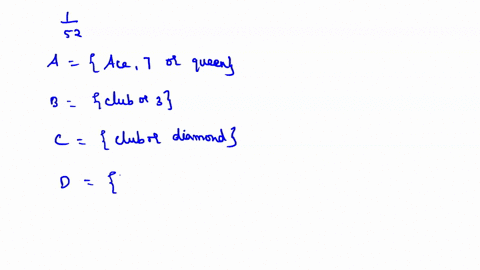 1/52
A = {Ace, 7 or queen}
B = {club or 3}
C = {club or diamond}
D = {